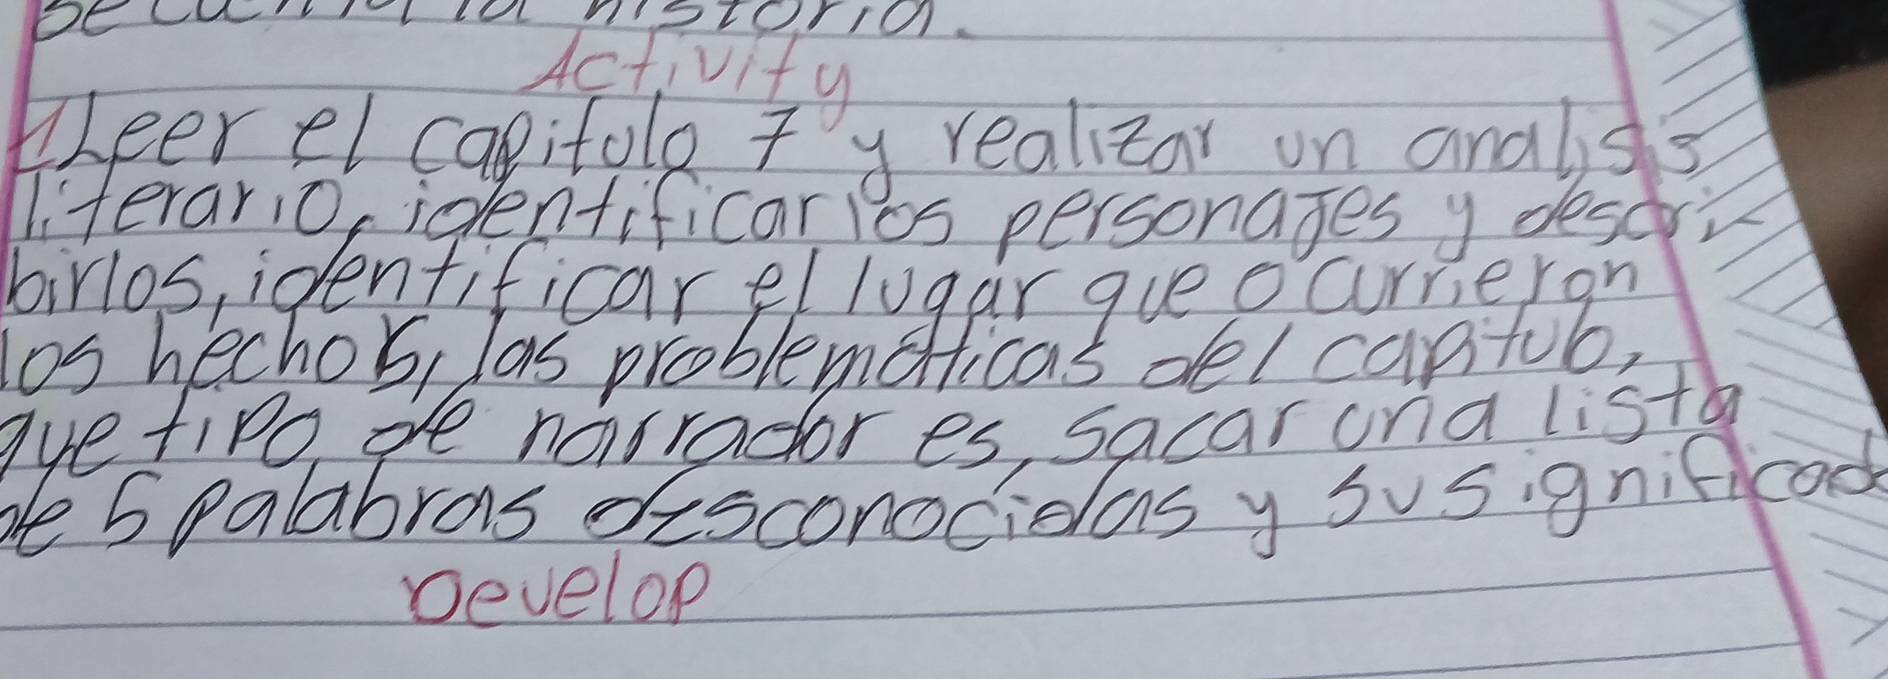 la historia.
Activity
1 Leer el capitulo 7 y realizar un analisis
literario, identificar los personajes y descri
birlos, identificar el lugar que ocurrieron
los hechos, las problematicas del capitulo,
que tipo de narrador es, sacar una lista
de 5 palabras desconocidas y su significad
Develop